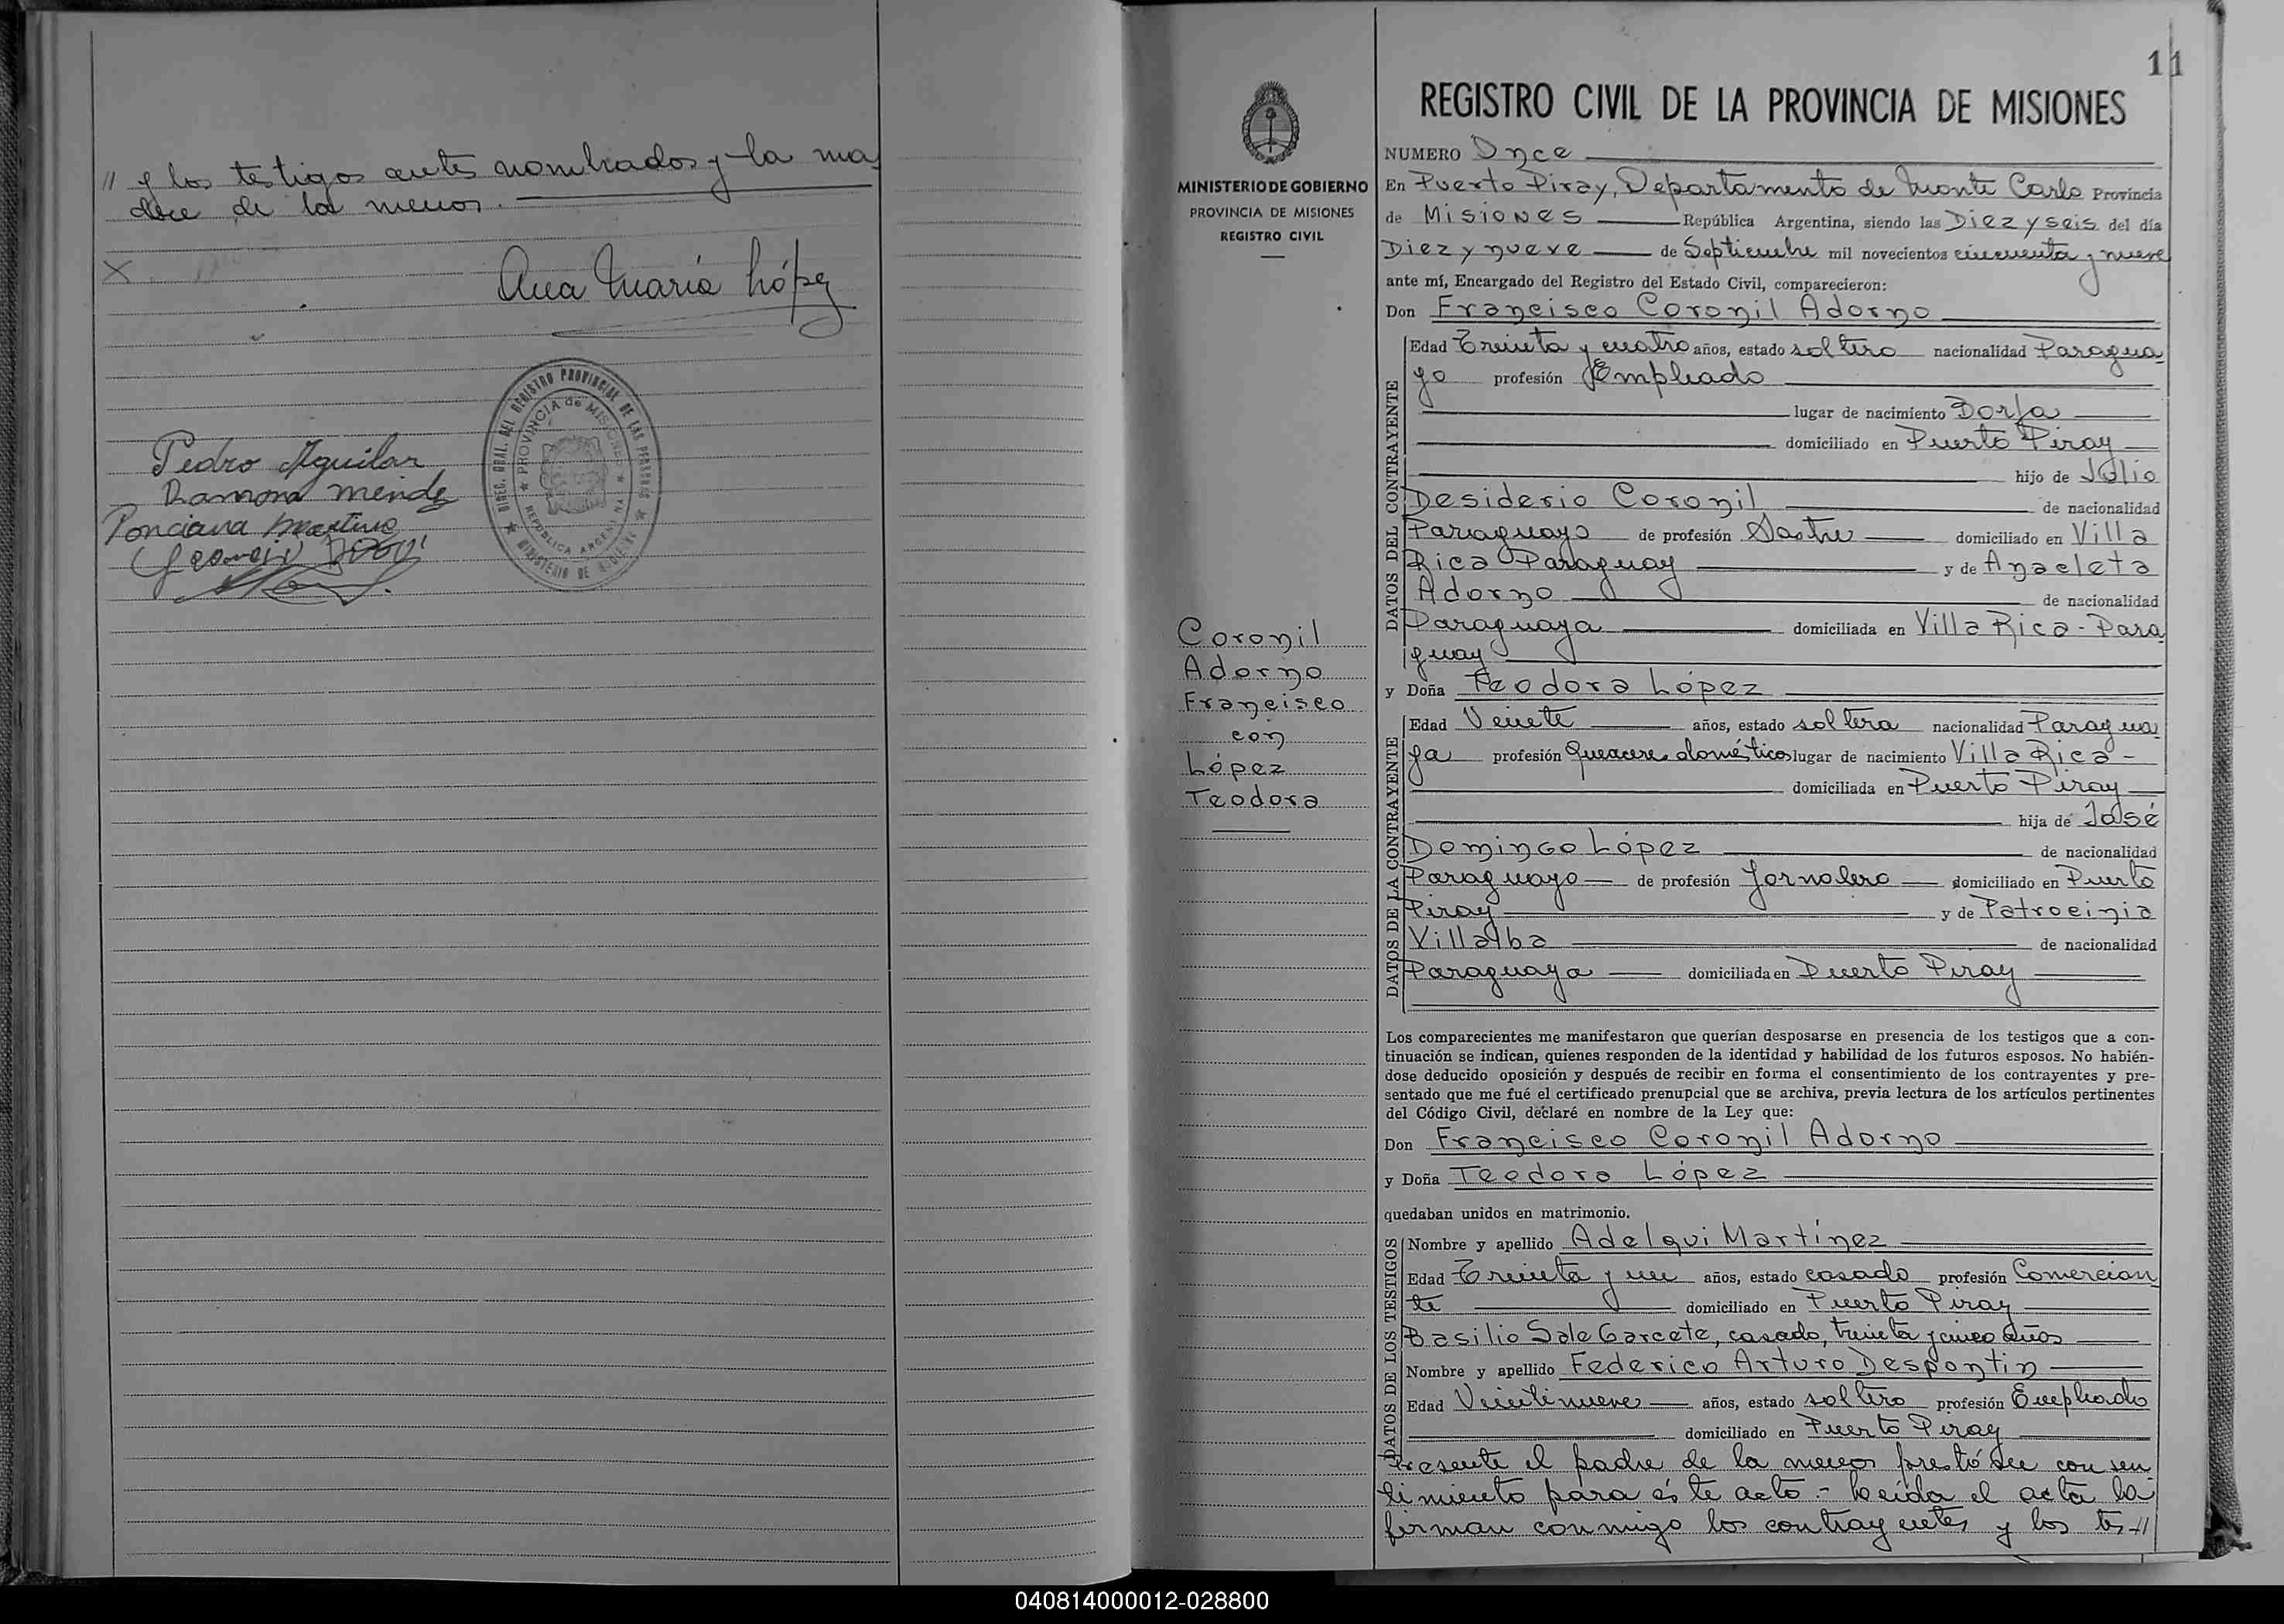 " y los testigos antes nombrados y la ma
dre de la menor.
X
Ana María López
DIREC. GRAL. DEL REGISTRO PROVINCIAL DE LAS PERSONAS
★ PROVINCIA de MISIONES ★
REPÚBLICA ARGENTINA
★ MINISTERIO DE GOBIERNO ★
Pedro Aguilar
Ramona Mende
Ponciana Martine
11
MINISTERIO DE GOBIERNO
PROVINCIA DE MISIONES
REGISTRO CIVIL
Coronil
Adorno
Francisco
con
López
Teodora
REGISTRO CIVIL DE LA PROVINCIA DE MISIONES
NUMERO Once
En Puerto Piray, Departamento de Monte Carlo Provincia
de Misiones República Argentina, siendo las Diez y seis del día
Diez y nueve de Septiembre mil novecientos cincuenta y nueve
ante mí, Encargado del Registro del Estado Civil, comparecieron:
Don Francisco Coronil Adorno
DATOS DEL CONTRAYENTE
Edad Treinta y cuatro años, estado soltero nacionalidad Paragua
yo profesión Empleado
lugar de nacimiento Borja
domiciliado en Puerto Piray
hijo de Julio
Desiderio Coronil de nacionalidad
Paraguayo de profesión Sastre domiciliado en Villa
Rica Paraguay y de Anacleta
Adorno de nacionalidad
Paraguaya domiciliada en Villa Rica - Para
guay
y Doña Teodora López
DATOS DE LA CONTRAYENTE
Edad Veinte años, estado soltera nacionalidad Paragua
ya profesión Quehacere domésticos lugar de nacimiento Villa Rica -
domiciliada en Puerto Piray
hija de José
Domingo López de nacionalidad
Paraguayo de profesión Jornalero domiciliado en Puerto
Piray y de Patrocinia
Villalba de nacionalidad
Paraguaya domiciliada en Puerto Piray
Los comparecientes me manifestaron que querían desposarse en presencia de los testigos que a con-
tinuación se indican, quienes responden de la identidad y habilidad de los futuros esposos. No habién-
dose deducido oposición y después de recibir en forma el consentimiento de los contrayentes y pre-
sentado que me fué el certificado prenupcial que se archiva, previa lectura de los artículos pertinentes
del Código Civil, declaré en nombre de la Ley que:
Don Francisco Coronil Adorno
y Doña Teodora López
quedaban unidos en matrimonio.
DATOS DE LOS TESTIGOS
Nombre y apellido Adelqui Martínez
Edad Treinta y un años, estado casado profesión Comercian
te domiciliado en Puerto Piray
Basilio Sale Garcete, casado, treinta y cinco años
Nombre y apellido Federico Arturo Despontin
Edad Veintinueve años, estado soltero profesión Empleado
domiciliado en Puerto Piray
Presente el padre de la menor prestó su consen
timiento para éste acto. - Leída el acta la
firman conmigo los contrayentes y los tes //
040814000012-028800